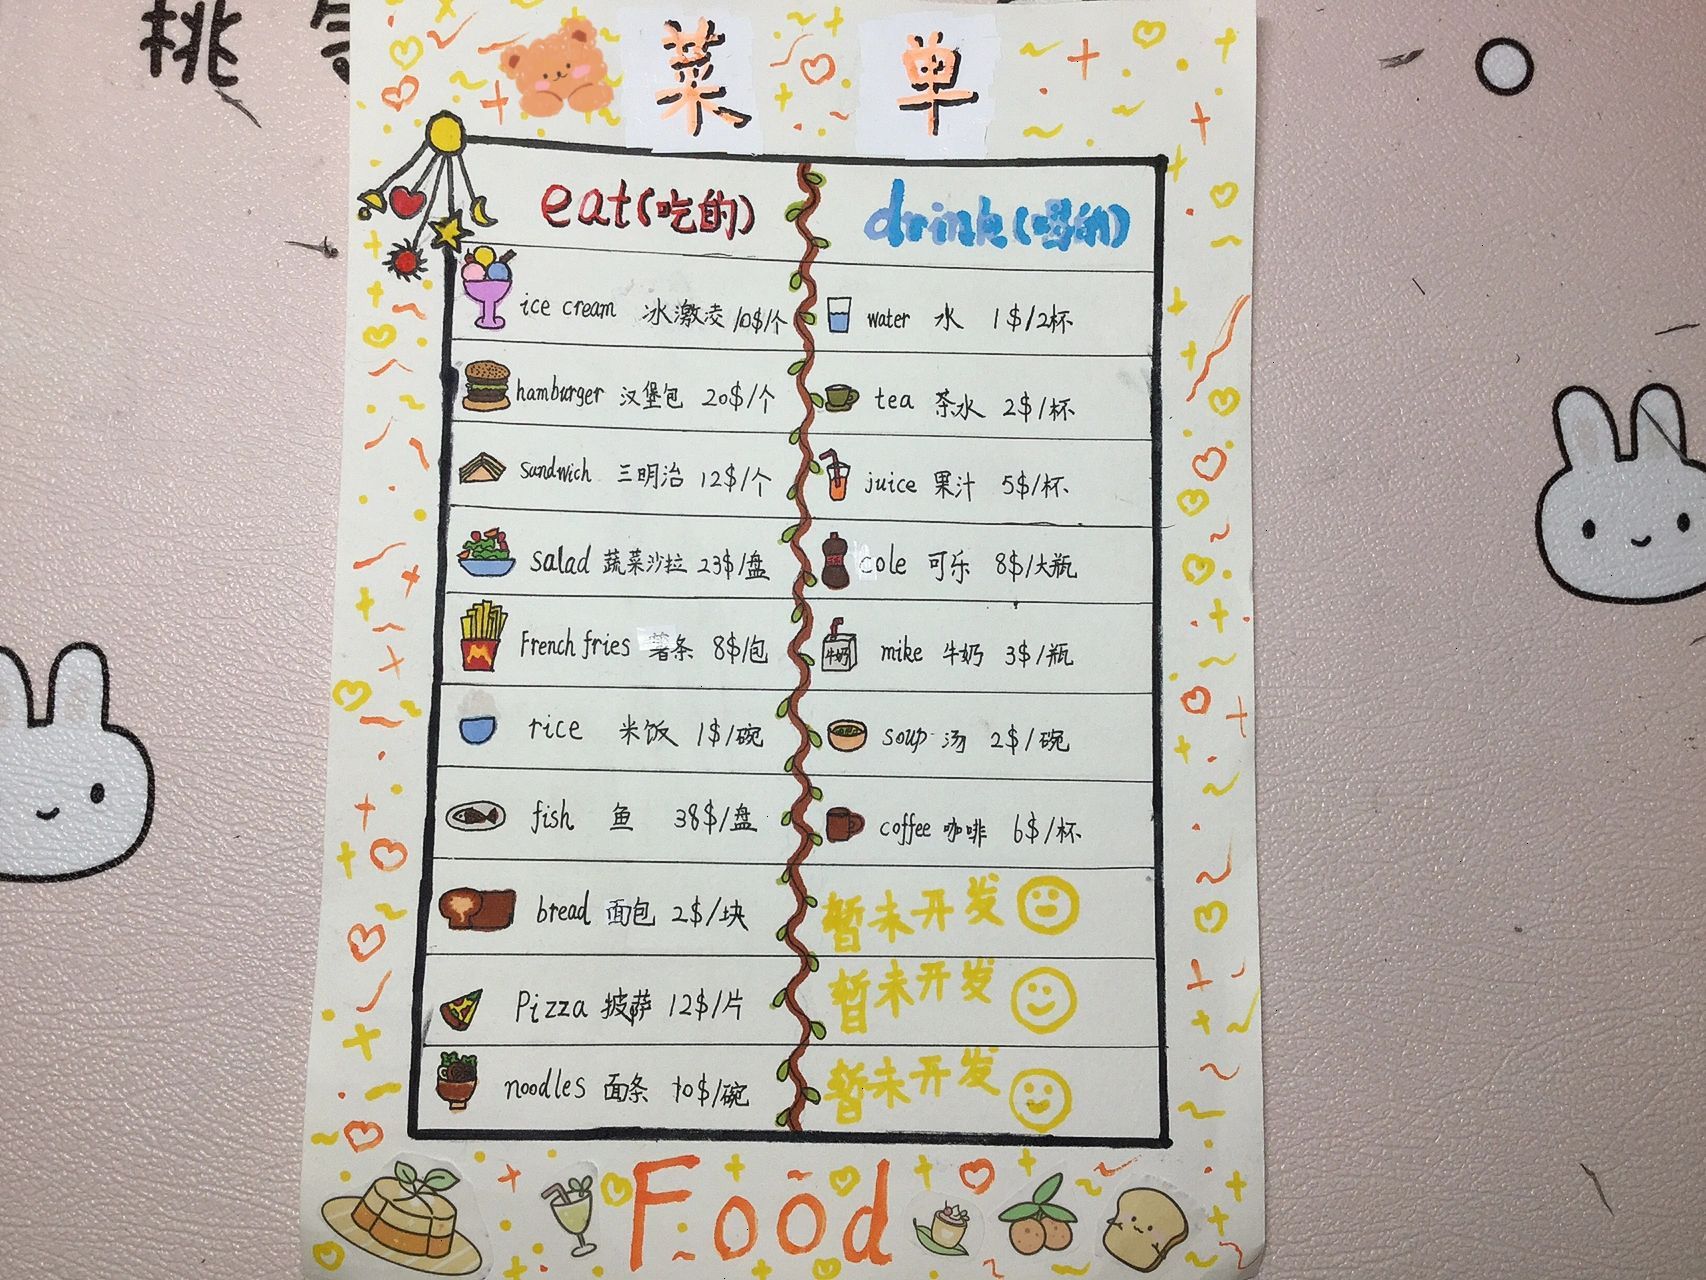 桃
菜 单
eat(吃的)
drink(喝的)
ice cream 冰激凌 10$/个
water 水 1$/2杯
hamburger 汉堡包 20$/个
tea 茶水 2$/杯
sandwich 三明治 12$/个
juice 果汁 5$/杯
salad 蔬菜沙拉 23$/盘
cole 可乐 8$/大瓶
French fries 薯条 8$/包
牛奶
mike 牛奶 3$/瓶
rice 米饭 1$/碗
soup 汤 2$/碗
fish 鱼 38$/盘
coffee 咖啡 6$/杯
bread 面包 2$/块
暂未开发
Pizza 披萨 12$/片
暂未开发
noodles 面条 10$/碗
暂未开发
Food